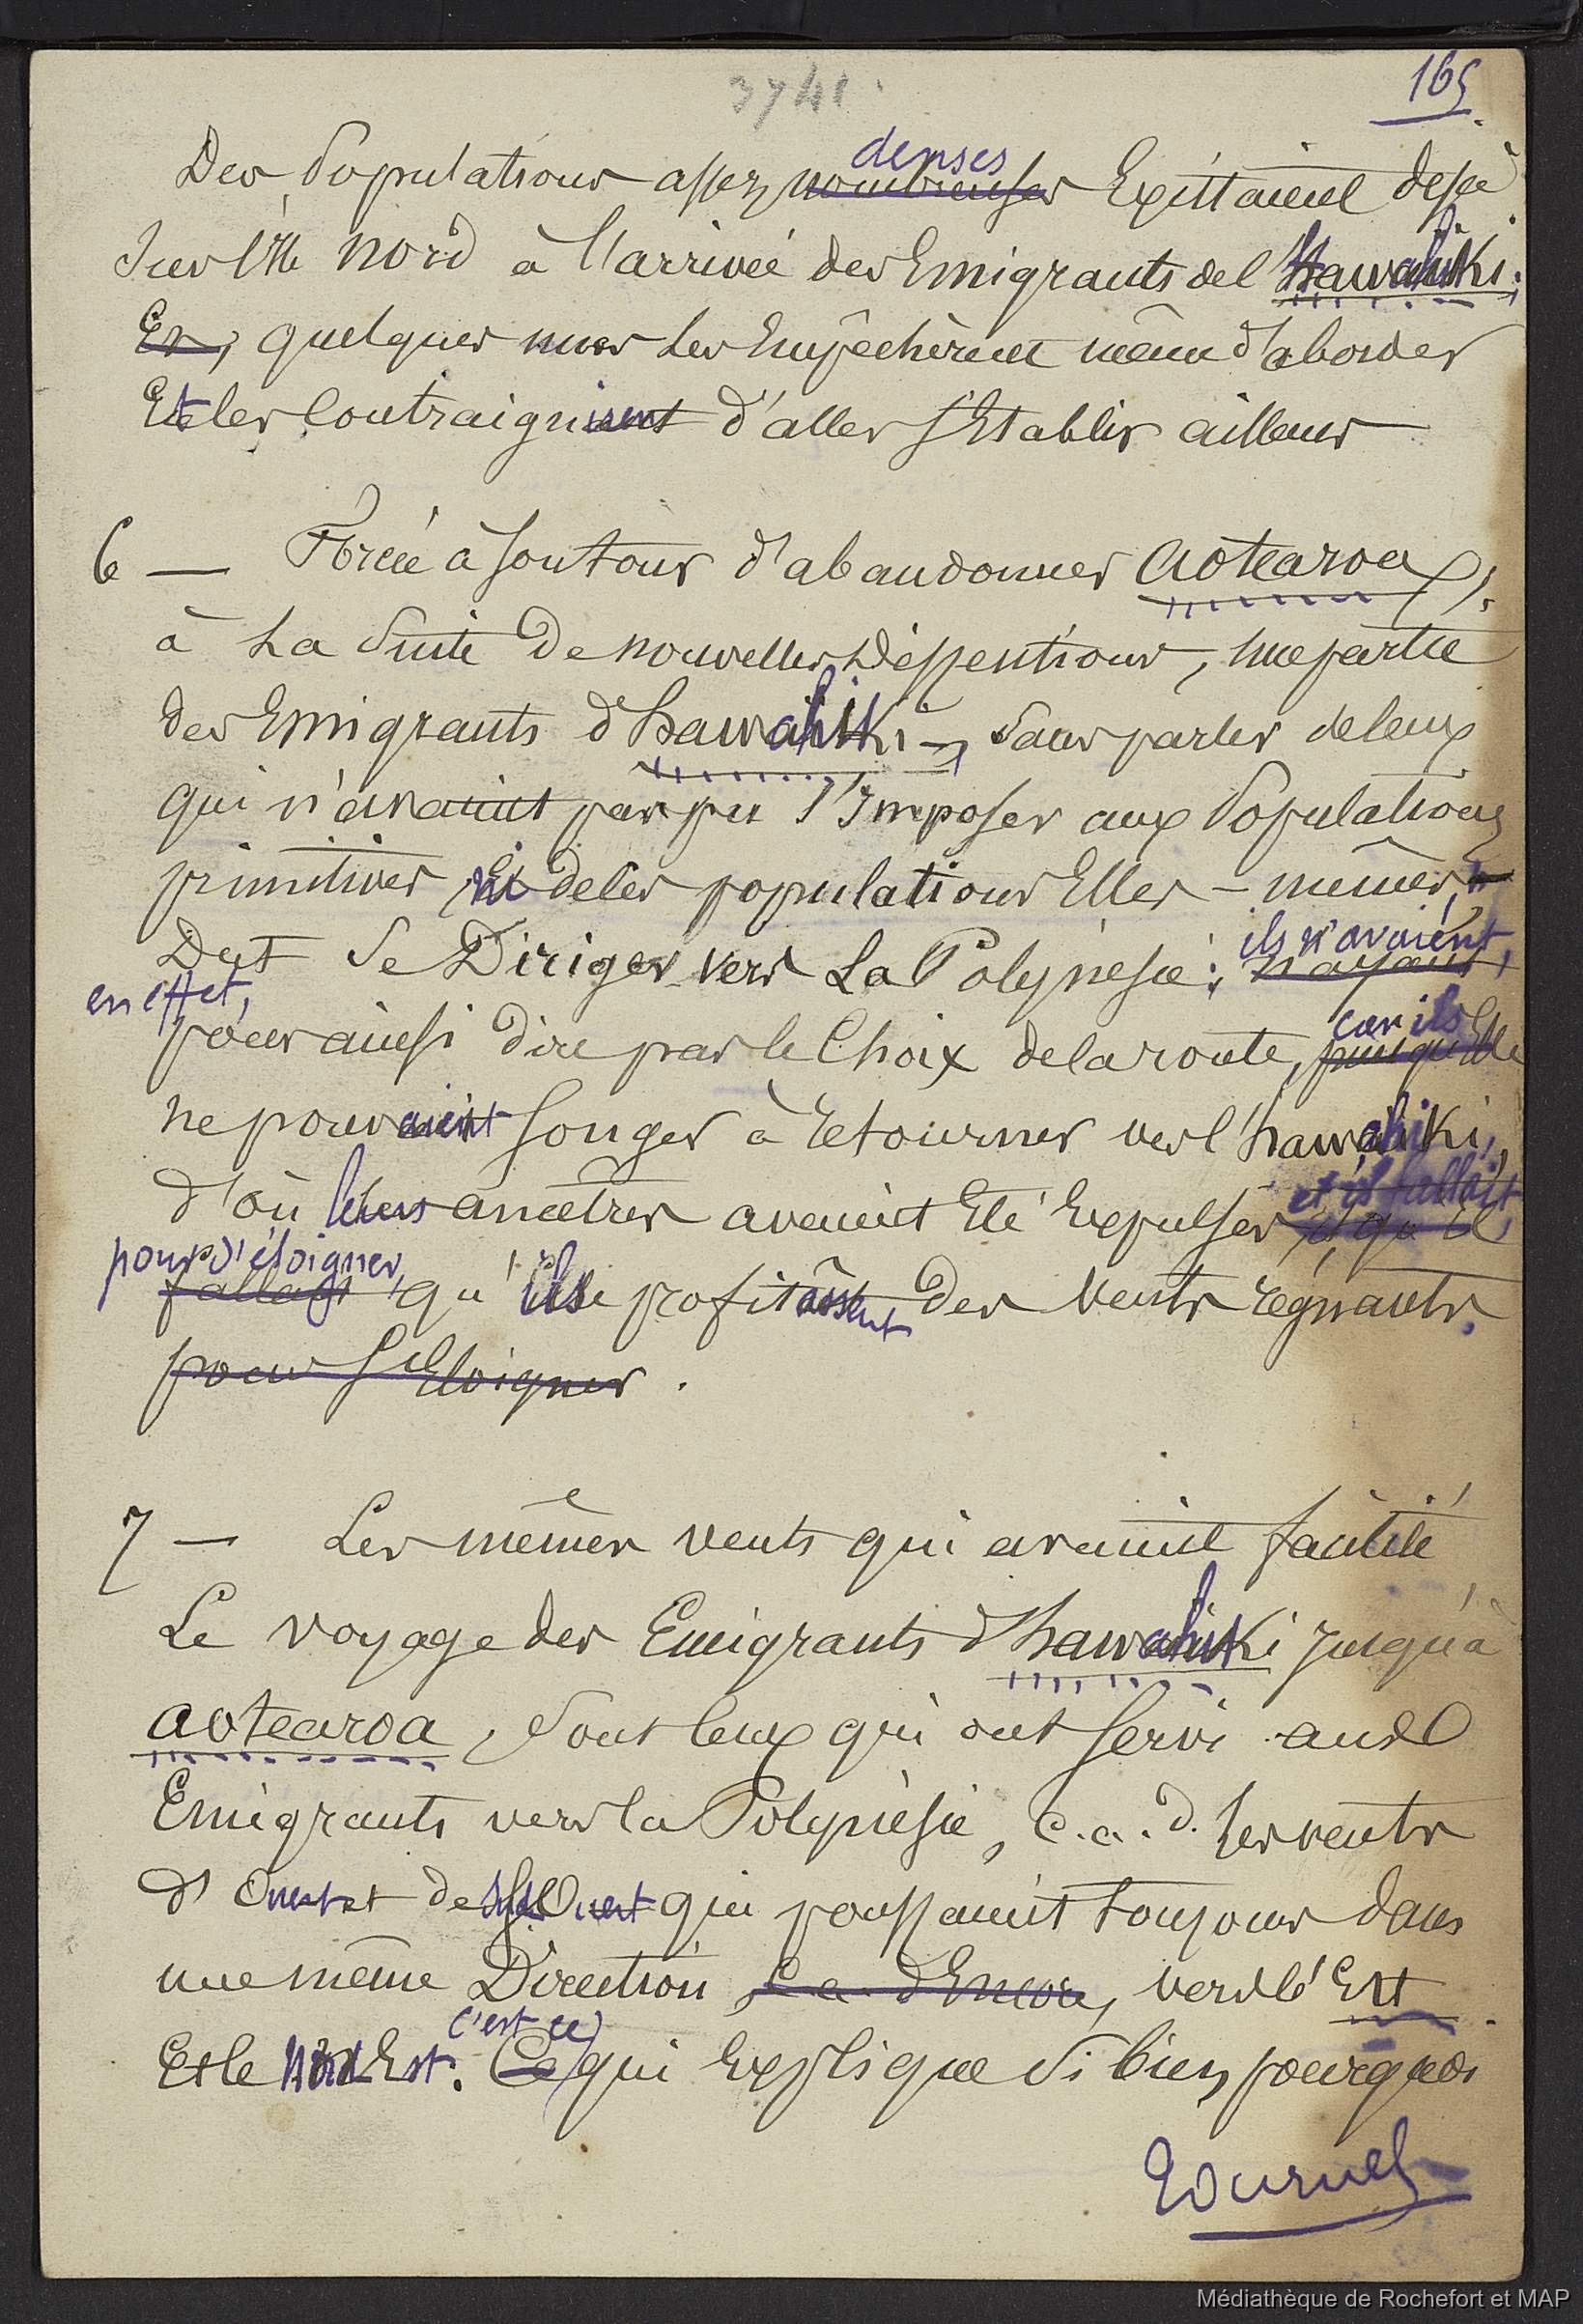 3741
165
denses
Des Populations assez nombreuses Existaient déjà
sur l'île nord à l'arrivée des Emigrants de l'hawahiki.
En, quelques unes les Empêchèrent même d'aborder
Et les contraignirent d'aller s'Etablir ailleurs
6 — Forcée à son tour d'abandonner aotearoa
à la suite de nouvelles Dissentions, une partie
des Emigrants d'hawahiki —, sans parler de ceux
qui n'avaient pas pu s'Imposer aux Populations
primitives, ni de ces populations Elles-mêmes, —
Dut se Diriger vers La Polynésie : n'ayant, ils n'avaient,
en effet,
pour ainsi dire pas le Choix de la route, puisqu'elle car ils
ne pouvaient songer à retourner vers l'hawahiki,
d'où leurs ancêtres avaient Eté Expulsés, et qu'il et il fallait,
pour s'éloigner,
fallait qu'ils profitassent des Vents régnants.
pour s'Eloigner.
7 — Les mêmes vents qui avaient facilité
Le voyage des Emigrants d'hawahiki jusqu'à
aotearoa, sont ceux qui ont servi aux
Emigrants vers la Polynésie, C.a.d. les vents
d'Ouest et de Sud Ouest qui poussaient toujours dans
une même Direction C.a.d Encore, vers l'Est
c'est ce
Et le Nord Est : Ce qui Explique si bien pourquoi
Tournez
Médiathèque de Rochefort et MAP